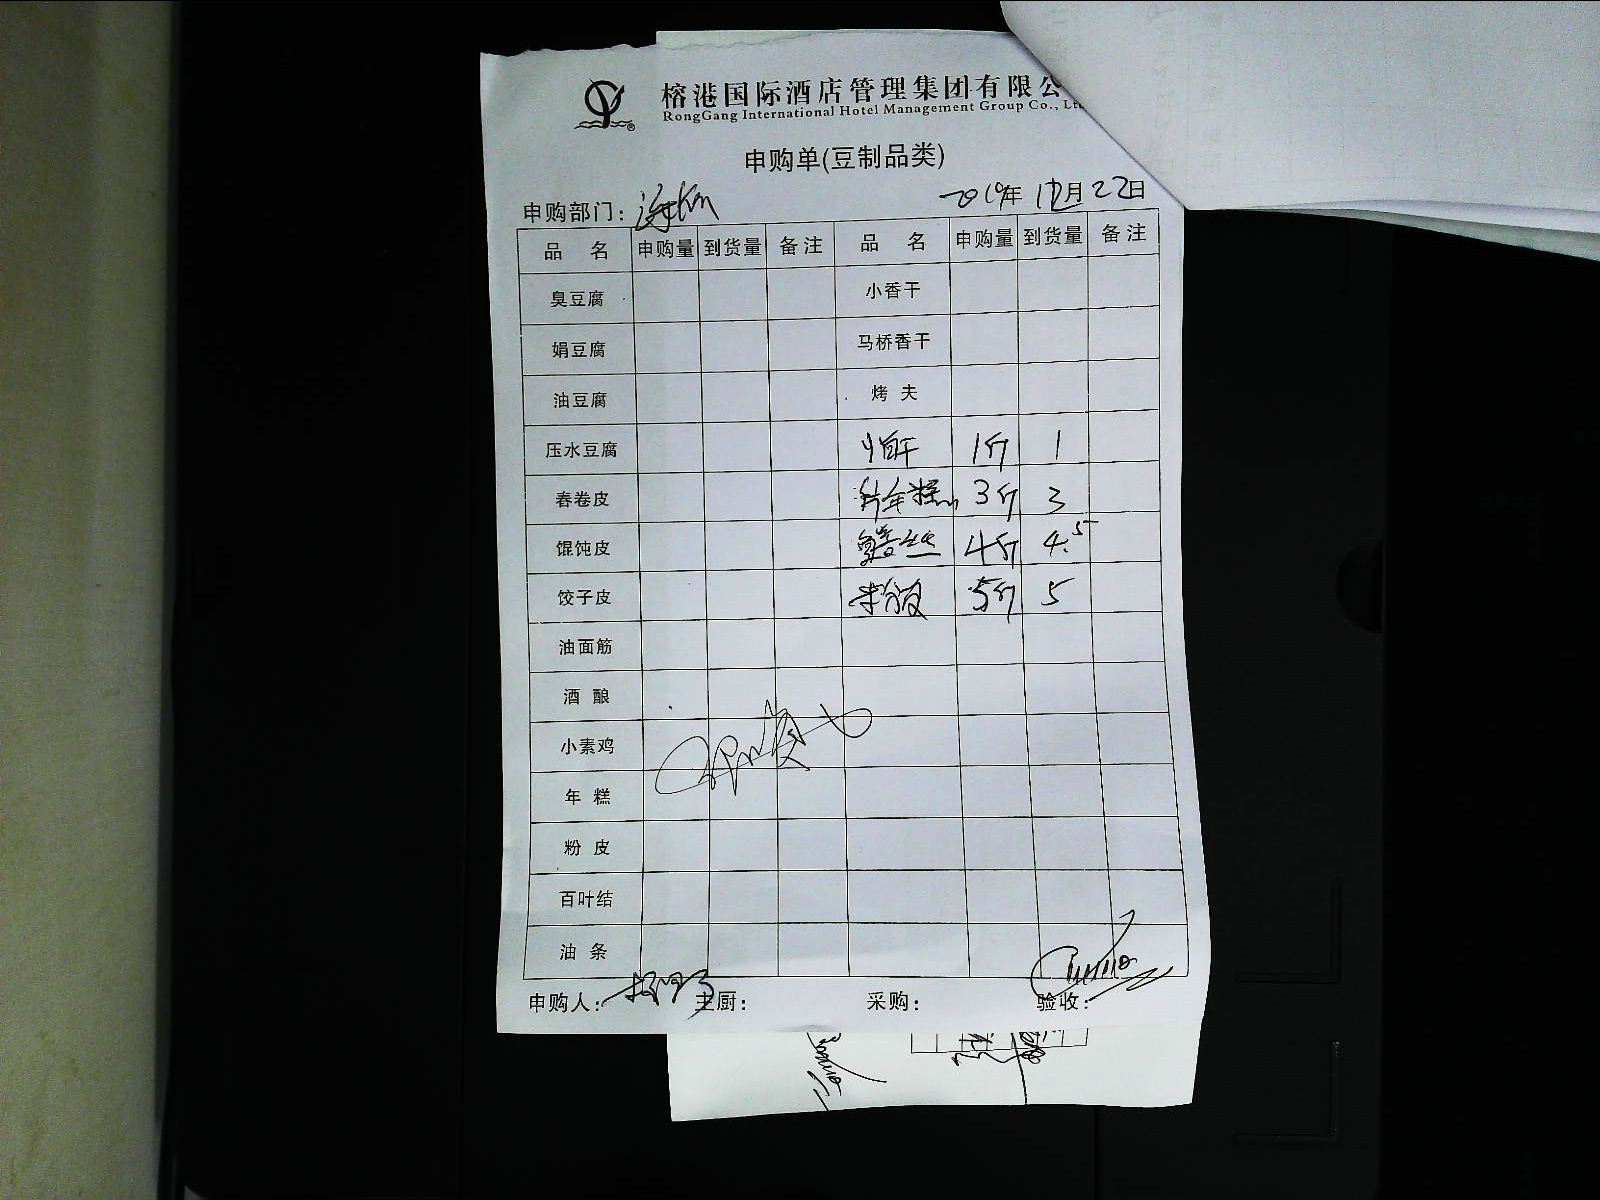 榕港国际酒店管理集团有限公
RongGang International Hotel Management Group Co., Lt
申购单(豆制品类)
申购部门：
2019年 12月 22日
品 名 申购量 到货量 备注 品 名 申购量 到货量 备注
臭豆腐 小香干
娟豆腐 马桥香干
油豆腐 烤 夫
压水豆腐 1斤 1
春卷皮 片年糕 3斤 3
馄饨皮 鳝丝 4斤 4.5
饺子皮 5斤 5
油面筋
酒 酿
小素鸡
年 糕
粉 皮
百叶结
油 条
申购人： 主厨： 采购： 验收：